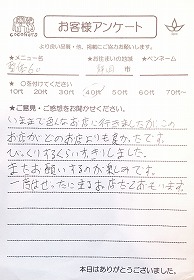 cocokara
お客様アンケート
より良い店舗・技、向上にご協力お願いします。
★メニュー名
★お住まいの地域
★ペンネーム
整体60
市
★○を付けてください
10代 20代 30代 40代 50代 60代 70代～
★ご意見・ご感想をお聞かせください。
いままで色んなお店に行きましたがこの
お店がどのお店よりも良かったです。
びっくりするくらいすっきりしました。
またお願いするのが楽しみです。
一度はぜったい来るお店だとおもいます。
本日はありがとうございました。